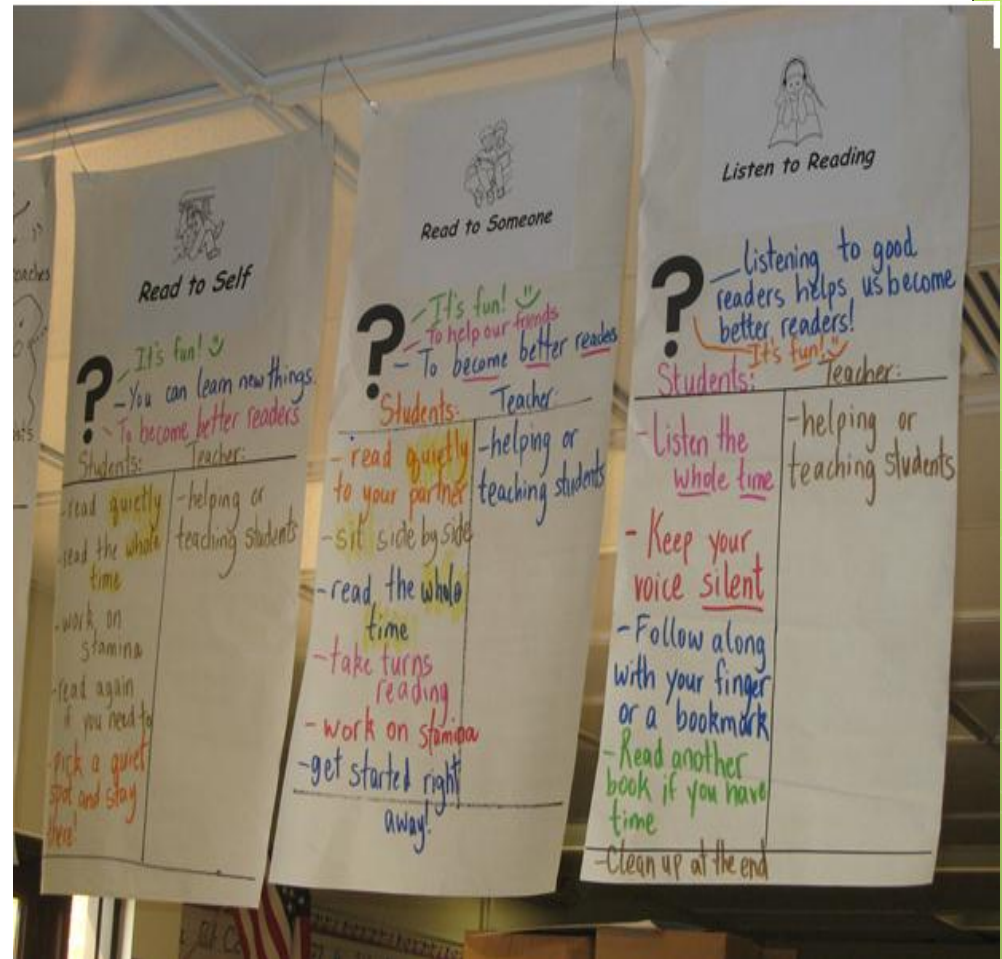 Read to Self
- It's fun!
- You can learn new things.
- To become better readers
Students: Teacher:
-read quietly
-read the whole
time
-work on
stamina
-read again
if you need to
-pick a quiet
spot and stay
there!
-helping or
teaching students
Read to Someone
- It's fun!
- To help our friends
- To become better readers
Students: Teacher:
- read quietly
to your partner
-sit side by side
-read the whole
time
-take turns
reading
- work on stamina
-get started right
away!
-helping or
teaching students
Listen to Reading
-listening to good
readers helps us become
better readers!
-It's fun!
Students: Teacher:
-Listen the
whole time
- Keep your
voice silent
-Follow along
with your finger
or a bookmark
-Read another
book if you have
time
-Clean up at the end
-helping or
teaching students